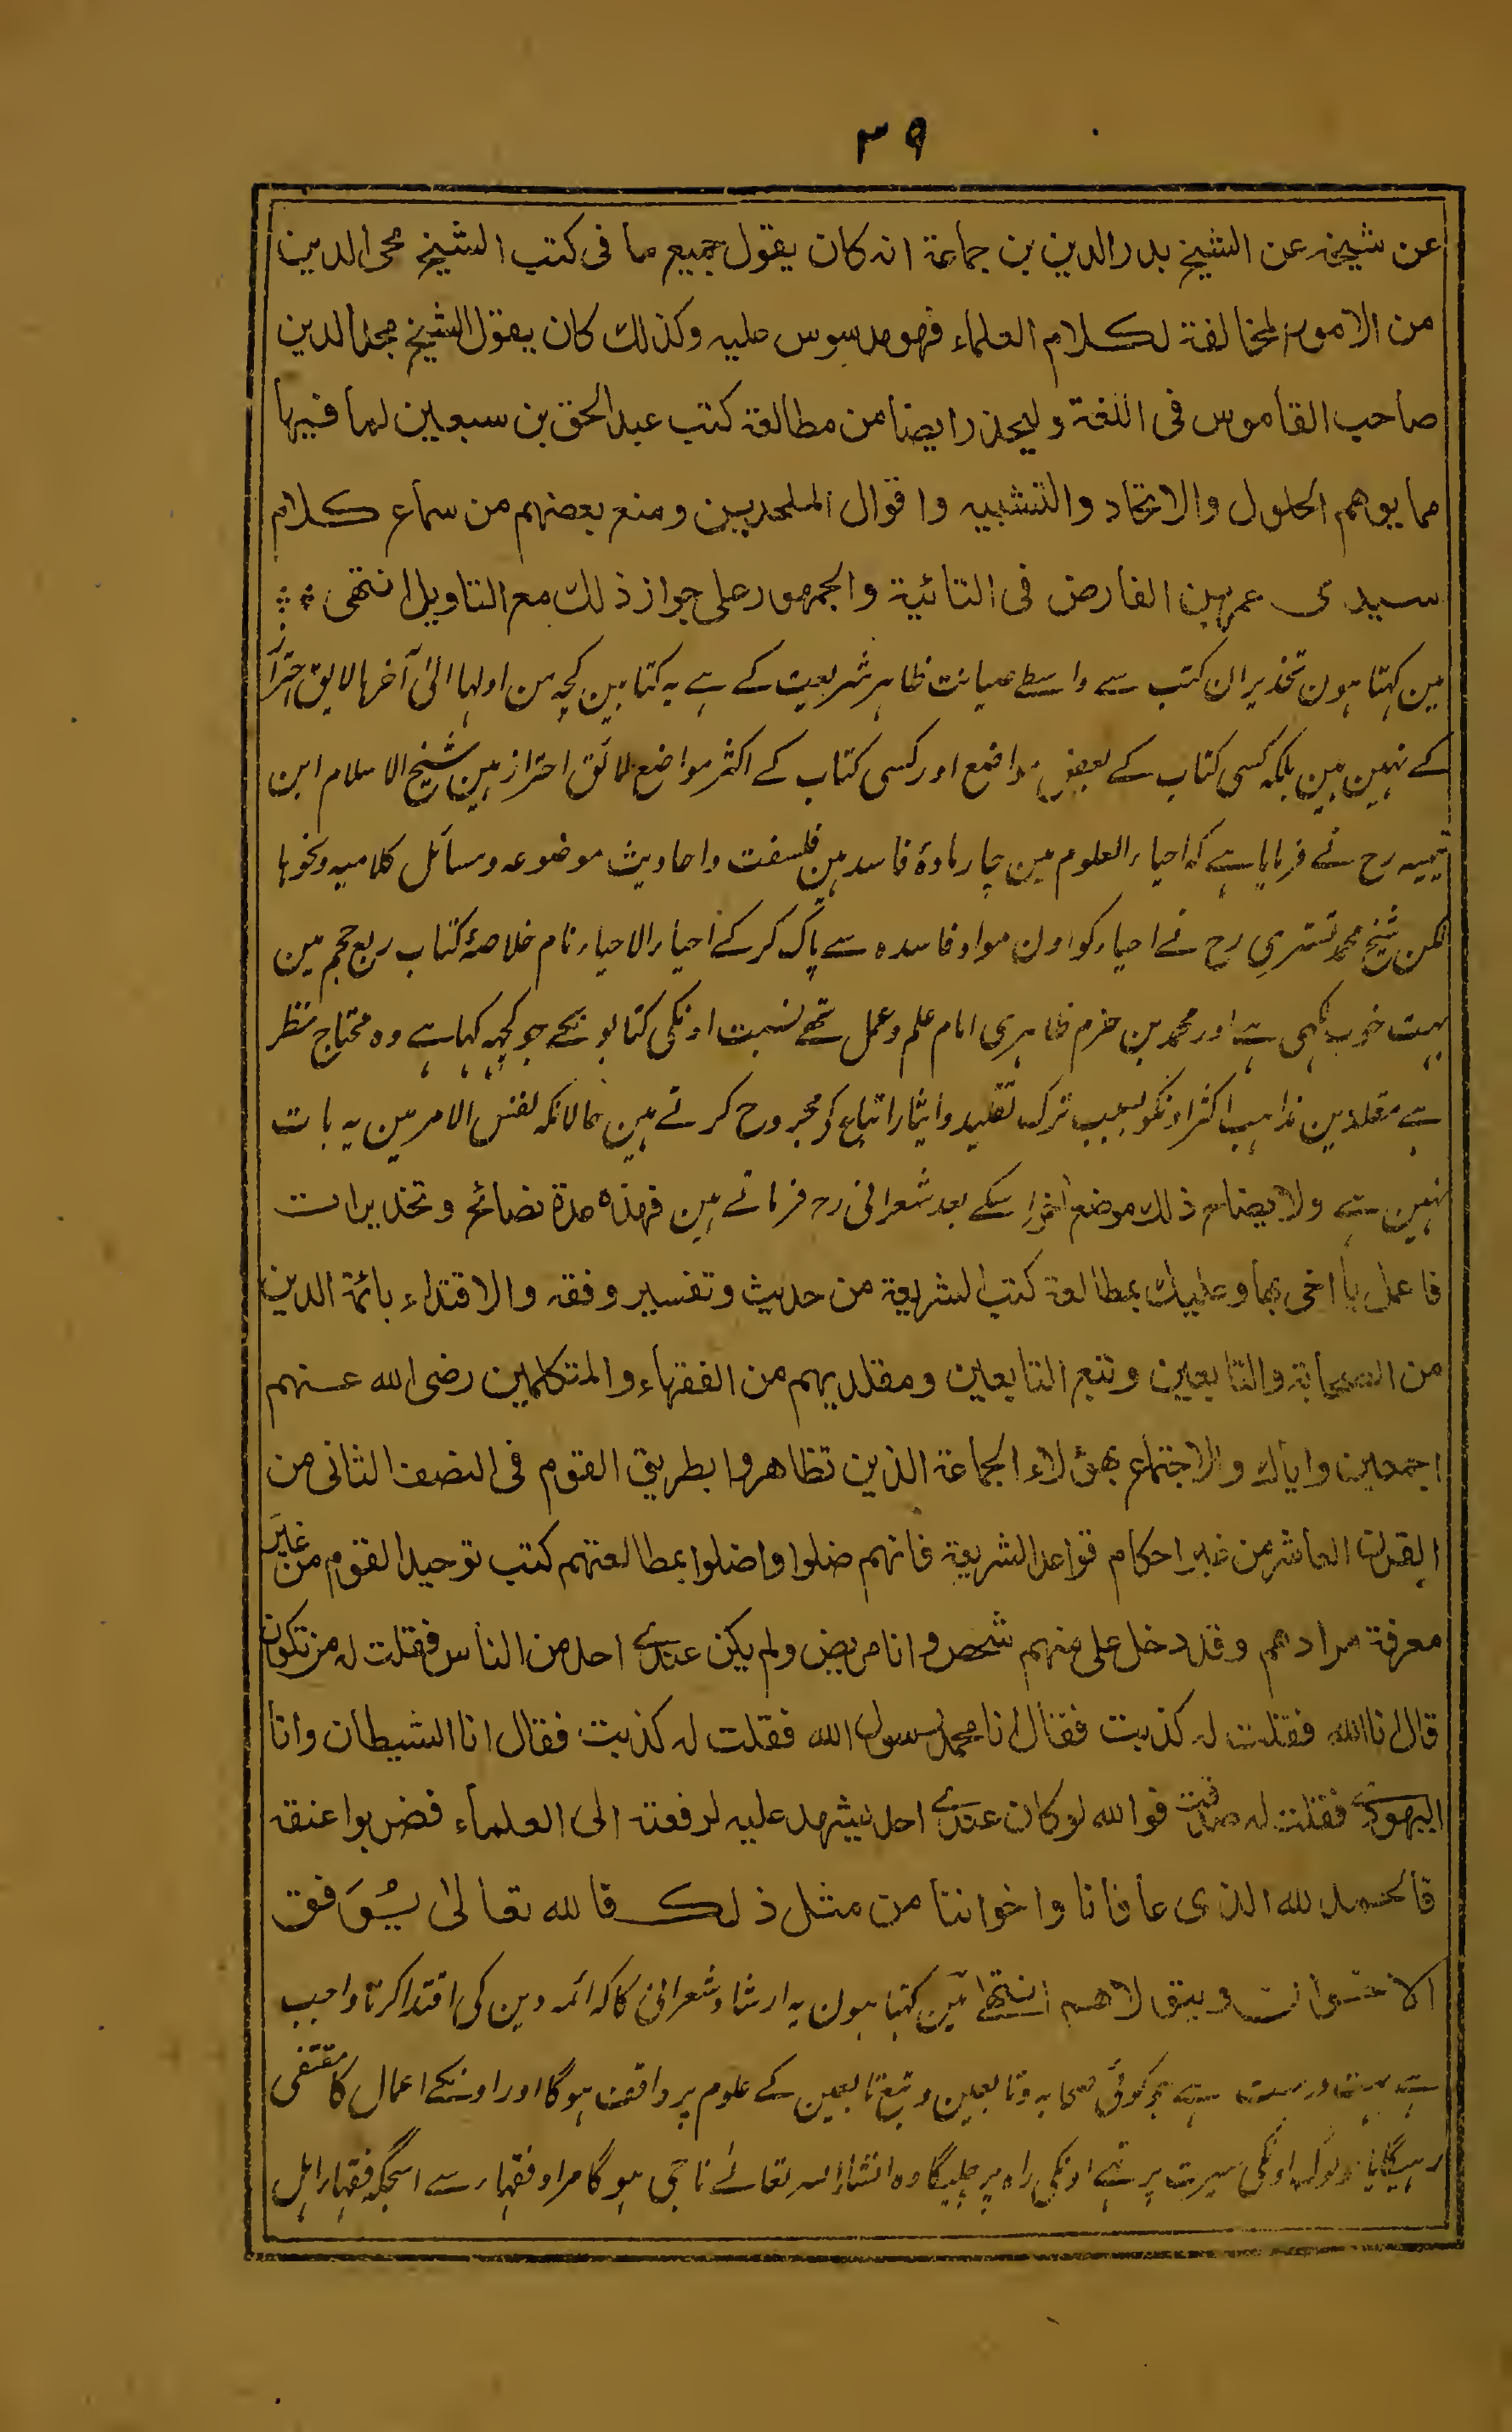 ۳۹
عن شیخہ عن الشیخ بدر الدین بن جماعۃ انہ کان یقول جمیع ما فی کتب الشیخ محی الدین
من الامور المخالفۃ لکلام العلماء فھو مدسوس علیہ وکذلک کان یقول الشیخ مجد الدین
صاحب القاموس فی اللغۃ ولیحذر ایضا من مطالعۃ کتب عبد الحق بن سبعین لما فیہا
مما یوھم الحلول والاتحاد والتشبیہ واقوال الملحدین ومنع بعضہم من سماع کلام
سیدی عمر بن الفارض فی التائیۃ والجمہور علی جواز ذلک مع التاویل انتھی
مین کہتا ہون تحذیر ان کتب سے واسطے صیانت ظاہر شریعت کے ہے یہ کتابین کچہ من اولہا الیٰ آخرہا لایق احتراز
کے نہین ہین بلکہ کسی کتاب کے بعض مواضع اور کسی کتاب کے اکثر مواضع لائق احتراز ہین شیخ الاسلام ابن
تیمیہ رح نے فرمایا ہے کہ احیاء العلوم مین چار مادۂ فاسد ہین فلسفت واحادیث موضوعہ ومسائل کلامیہ ونحوہا
لکن شیخ محمد تستری رح نے احیاء کو اون مواد فاسدہ سے پاک کرکے احیاء الاحیاء نام خلاصۂ کتاب ربع حجم مین
بہت خوب لکہی ہے اور محمد بن حزم ظاہری امام علم وعمل تھے نسبت اونکی کتابونکے جو کچہہ کہا ہے وہ محتاج نظر
ہے مقلدین مذاہب اکثر اونکو بسبب ترک تقلید وایثار اتباع کے مجروح کرتے ہین حالانکہ نفس الامر مین یہ بات
نہین ہے ولایضاح ذلک موضع اٰخر اسکے بعد شعرانی رح فرماتے ہین فہذہ عدۃ نصائح وتحذیرات
فاعمل یا اخی بہا وعلیک بمطالعۃ کتب الشریعۃ من حدیث وتفسیر وفقہ والاقتداء بائمۃ الدین
من الصحابۃ والتابعین وتبع التابعین ومقلدیہم من الفقہاء والمتکلمین رضی اللہ عنہم
اجمعین وایاک والاجتماع بھٰؤلاء الجماعۃ الذین تظاھروا بطریق القوم فی النصف الثانی من
القرن العاشر من غیر احکام قواعد الشریعۃ فانہم ضلوا واضلوا بمطالعتہم کتب توحید القوم من غیر
معرفۃ مرادھم وقد دخل علی منہم شخص وانا مریض ولم یکن عندی احد من الناس فقلت لہ من تکون
قال انا اللہ فقلت لہ کذبت فقال انا محمد رسول اللہ فقلت لہ کذبت فقال انا الشیطان وانا
الیہودی فقلت لہ صدقت فواللہ لو کان عندی احد یشہد علیہ لرفعتہ الی العلماء فضربوا عنقہ
فالحمد للہ الذی عافانا واخواننا من مثل ذلک فاللہ تعالیٰ یُوَفق
الاخوان ویتولاھم انتہیٰ مین کہتا ہون یہ ارشاد شعرانی کا کہ ائمہ دین کی اقتدا کرنا واجب
ہے بہت درست ہے جو کوئی صحابہ وتابعین وتبع تابعین کے علوم پر واقف ہوگا اور اونکے اعمال کا مقتفی
رہیگا یا اونکی سیرت پر اونکی راہ پر چلیگا وہ انشاء اللہ تعالےٰ ناجی ہوگا مراد فقہاء سے اسجگہ فقہاء اہل